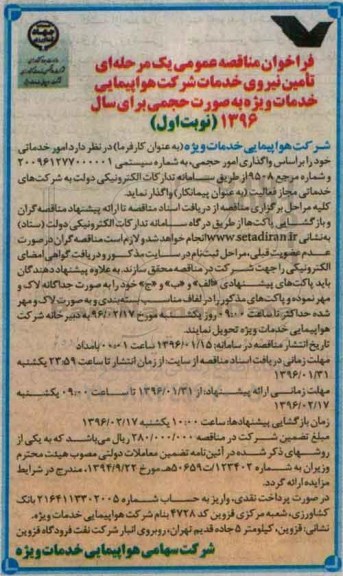 فراخوان مناقصه عمومی یک مرحله‌ای
تأمین نیروی خدمات شرکت هواپیمایی
خدمات ویژه به صورت حجمی برای سال
۱۳۹۶ (نوبت اول)
شرکت هواپیمایی خدمات ویژه (به عنوان کارفرما) در نظر دارد امور خدماتی
خود را بر اساس واگذاری امور حجمی، به شماره سیستمی ۲۰۰۹۶۱۲۷۷۰۰۰۰۰۱
و شماره مرجع ۹۵۰۸ از طریق سامانه تدارکات الکترونیکی دولت به شرکت‌های
خدماتی مجاز فعالیت (به عنوان پیمانکار) واگذار نماید.
کلیه مراحل برگزاری مناقصه از دریافت اسناد مناقصه تا ارائه پیشنهاد مناقصه‌گران
و بازگشایی پاکت‌ها از طریق درگاه سامانه تدارکات الکترونیکی دولت (ستاد)
به نشانی www.setadiran.ir انجام خواهد شد و لازم است مناقصه گران در صورت
عدم عضویت قبلی، مراحل ثبت‌نام در سایت مذکور و دریافت گواهی امضای
الکترونیکی را جهت شرکت در مناقصه محقق سازند. به علاوه پیشنهاددهندگان
باید پاکت‌های پیشنهادی «الف» و «ب» و «ج» خود را به صورت جداگانه لاک و
مهر نموده و پاکت‌های مذکور را در لفاف مناسب بسته‌بندی و به صورت لاک و مهر
شده حداکثر تا ساعت ۰۹:۰۰ روز یکشنبه مورخ ۹۶/۰۲/۱۷ به دبیرخانه شرکت
هواپیمایی خدمات ویژه تحویل نمایند.
تاریخ انتشار مناقصه در سامانه: ۱۳۹۶/۰۱/۱۵ ساعت ۰۰:۰۱ بامداد
مهلت زمانی دریافت اسناد مناقصه از سایت: از زمان انتشار تا ساعت ۲۳:۵۹ یکشنبه
۱۳۹۶/۰۱/۳۱
مهلت زمانی ارائه پیشنهاد: از ۱۳۹۶/۰۱/۳۱ تا ساعت ۰۹:۰۰ یکشنبه
۱۳۹۶/۰۲/۱۷
زمان بازگشایی پیشنهادها: ساعت ۱۰:۰۰ یکشنبه ۱۳۹۶/۰۲/۱۷
مبلغ تضمین شرکت در مناقصه ۲۸۰/۰۰۰/۰۰۰ ریال می‌باشد که به یکی از
روشهای ذکر شده در آئین‌نامه تضمین معاملات دولتی مصوب هیئت محترم
وزیران به شماره ۱۲۳۴۰۲/ت۵۰۶۵۹هـ مورخ ۱۳۹۴/۹/۲۲، مندرج در شرایط
مزایده ارائه گردد.
در صورت پرداخت نقدی، واریز به حساب شماره ۲۱۶۴۱۱۳۳۰۲۰۰۵ بانک
کشاورزی، شعبه مرکزی قزوین کد ۴۷۲۸ بنام شرکت هواپیمایی خدمات ویژه.
نشانی: قزوین، کیلومتر ۵ جاده قدیم تهران، روبروی انبار شرکت نفت فرودگاه قزوین
شرکت سهامی هواپیمایی خدمات ویژه